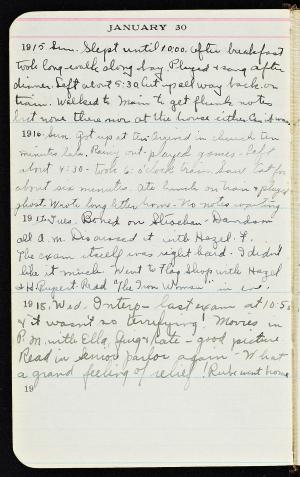 JANUARY 30
1915 Sun. Slept until 10:00. After breakfast
took long walk along bay. Played & sang after
dinner. Left about 5:30. Cut up all way back on
train. Walked to Main to get flunk notes
but none there nor at the house either.
1916 Sun. Got up at ten. Arrived in church ten
minutes late. Rainy out - played games. Left
about 4:30 - took 6: o'clock train. Saw Cat for
about six minutes. Ate lunch on train & played
ghost. Wrote long letter home. No notes waiting
1917. Tues. Boned on
all a.m. Discussed it with Hazel F.
The exam itself was right hard. I didn't
like it much. Went to Flag Shop with Hazel
& H. Rupert. Read "The Iron Woman" in eve.
1918. Wed. Interp - last exam at 10:50
& it wasn't so terrifying! Movies in
P.M. with Ella, & Kate - good picture
Read in Senior parlor again - What
a grand feeling of relief! Rube went home
19